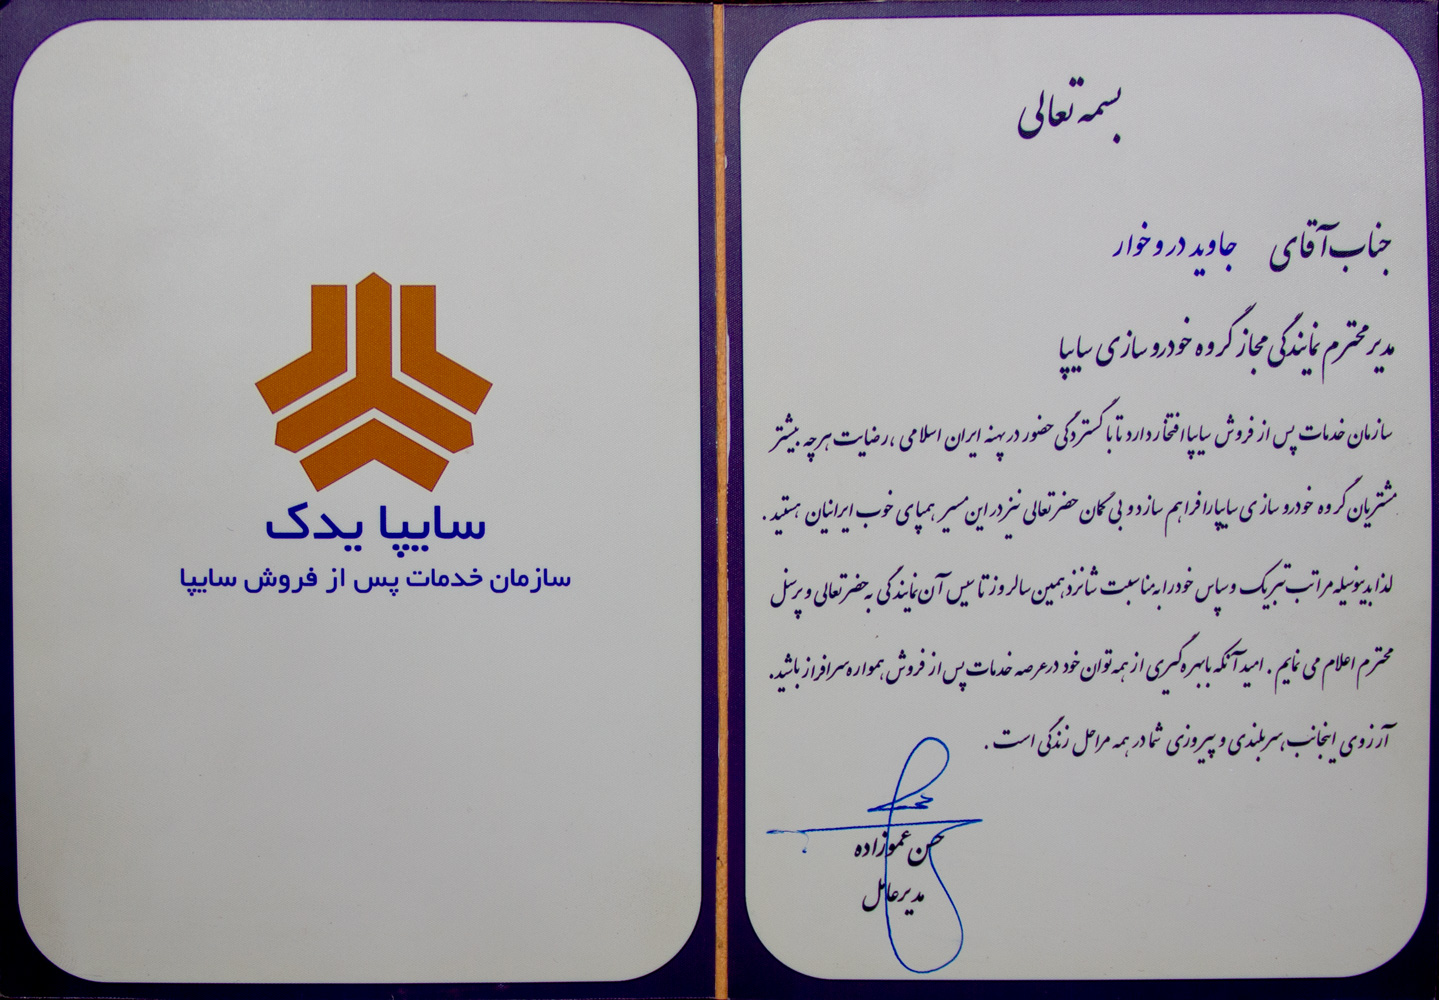 بسمه تعالی
جناب آقای جاوید دروخوار
مدیر محترم نمایندگی مجاز گروه خودروسازی سایپا
سازمان خدمات پس از فروش سایپا افتخار دارد تا با گستردگی حضور در پهنه ایران اسلامی ، رضایت هرچه بیشتر
مشتریان گروه خودروسازی سایپا را فراهم سازد و بی گمان حضرتعالی نیز در این مسیر همپای خوب ایرانیان هستید .
لذا بدینوسیله مراتب تبریک و سپاس خود را به مناسبت شانزدهمین سالروز تاسیس آن نمایندگی به حضرتعالی و پرسنل
محترم اعلام می نمایم . امید آنکه با بهره گیری از همه توان خود در عرصه خدمات پس از فروش همواره سرافراز باشید.
آرزوی اینجانب سربلندی و پیروزی شما در همه مراحل زندگی است .
حسن عموزاده
مدیرعامل
سایپا یدک
سازمان خدمات پس از فروش سایپا